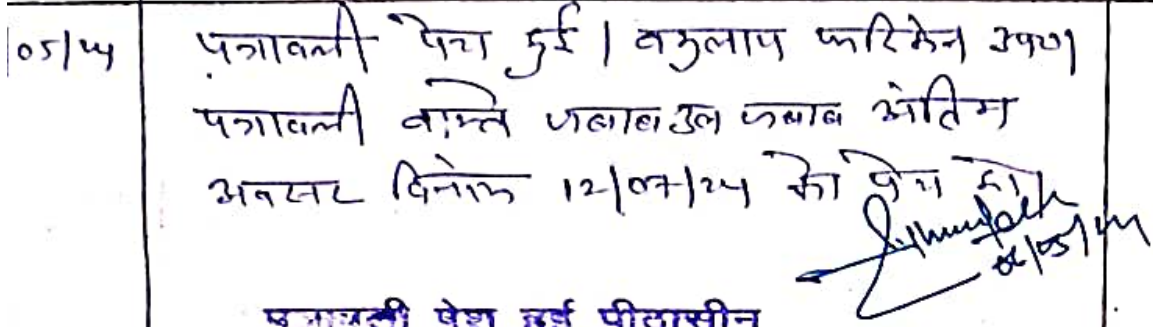 05/24 पत्रावली पेश हुई। वकुलाय फरिकेन उप०।
पत्रावली वास्ते जवाबउल जवाब अंतिम
अवसर दिनांक 12/07/24 को पेश हो।
/05/24
पत्रावली पेश हुई पीठासीन